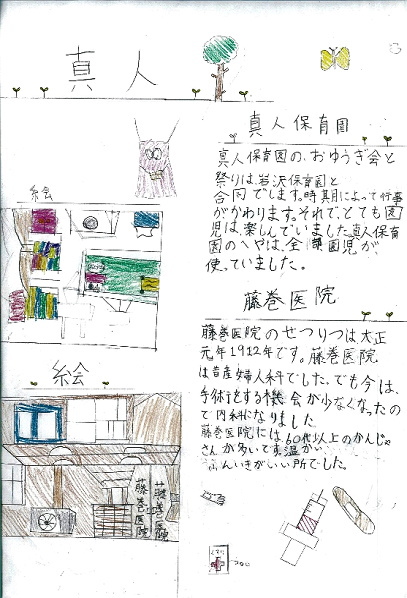 真人
絵
真人保育園
真人保育園の、おゆうぎ会と
祭りは、岩沢保育園と
合同でします。時期によって行事
がかわります。それで、とても園
児は楽しんでいました。真人保育
園のへやは、全園児が、
使っていました。
藤巻医院
藤巻医院のせつりつは大正
元年1912年です。藤巻医院
は昔産婦人科でした。でも今は、
手術をする機会が少なくなったの
で内科になりました
藤巻医院には、60代以上のかんじゃ
さんが多いです。温かい
ふんいきがいい所でした。
絵
藤巻医院
藤巻医院